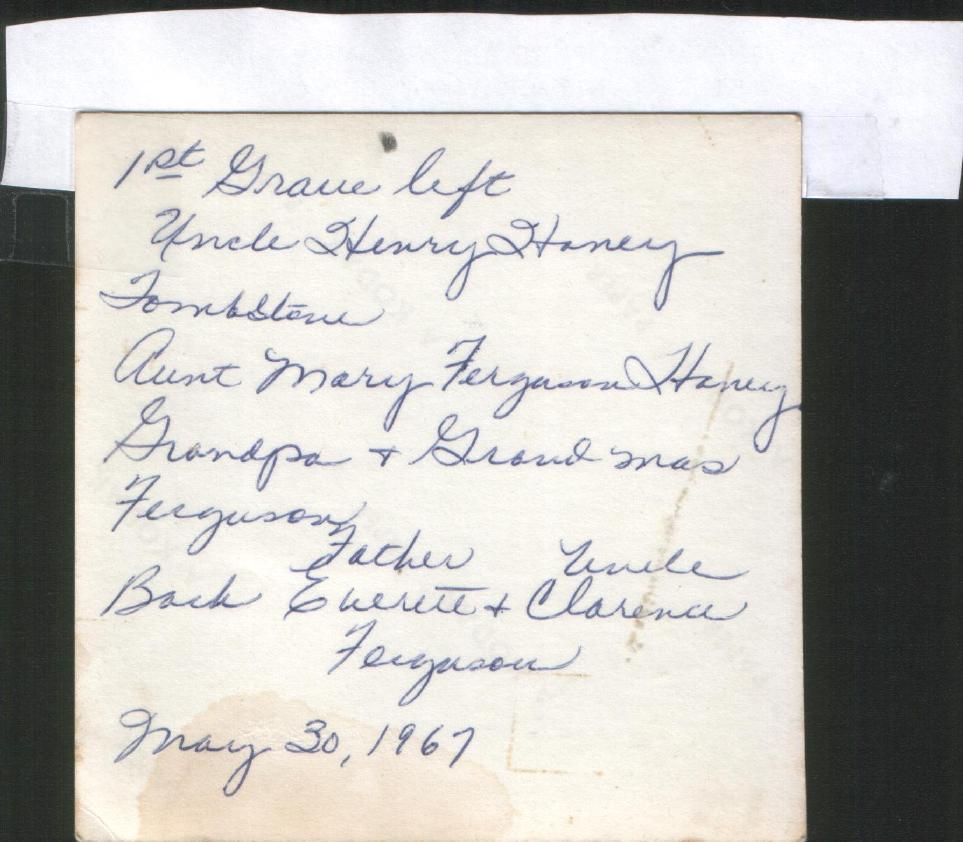 1st Grave left
Uncle Henry Haney
Tombstone
Aunt Mary Ferguson Haney
Grandpa + Grand mas
Ferguson
Father Uncle
Back Everett + Clarence
Ferguson
May 30, 1967